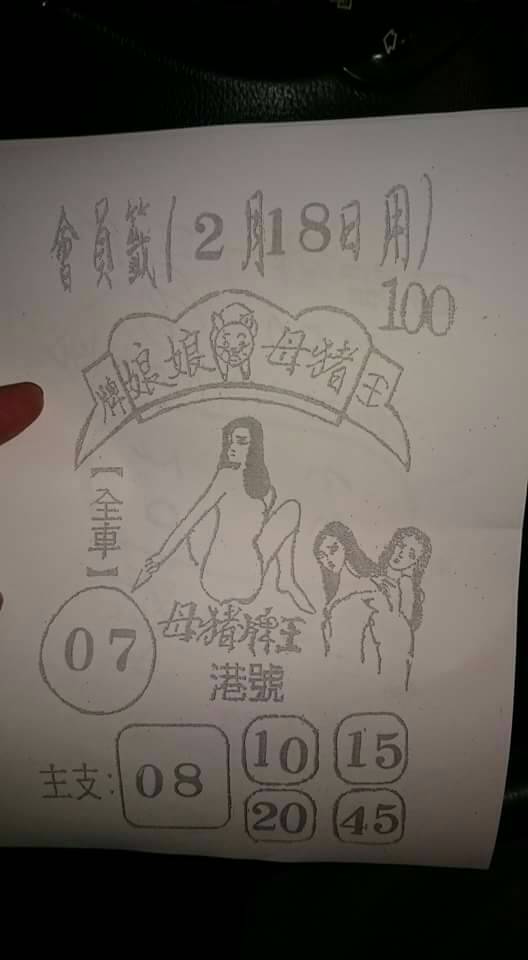 會員籤(2月18日用)
100
牌娘娘 母猪王
【全車】
07
母猪牌王
港號
主支: 08 10 15
20 45